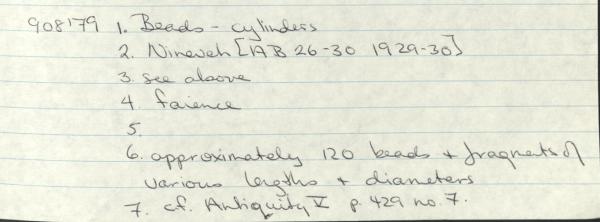 908179 1. Beads - cylinders
2. Nineveh [AB 26-30 1929-30]
3. see above
4. faience
5.
6. approximately 120 beads + fragments of
various lengths + diameters
7. cf. Antiquity V p. 429 no. 7.